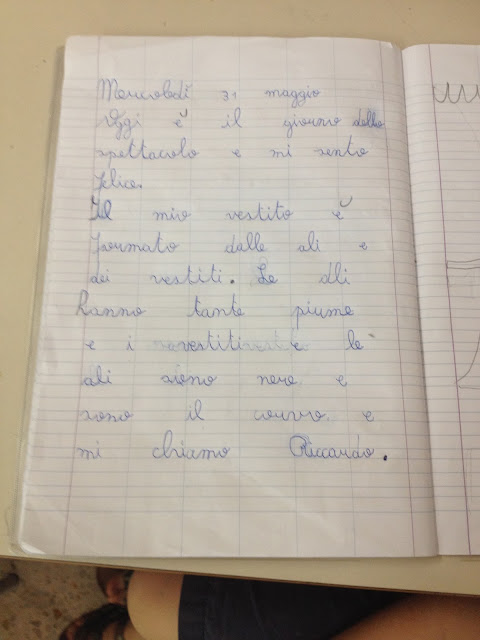 Mercoledì 31 maggio
Oggi è il giorno dello
spettacolo e mi sento
felice.
Il mio vestito è
formato dalle ali e
dei vestiti. Le ali
Ranno tante piume
e i vestiti e le
ali sieno nere e
sono il corvo e
mi chiamo Riccardo.